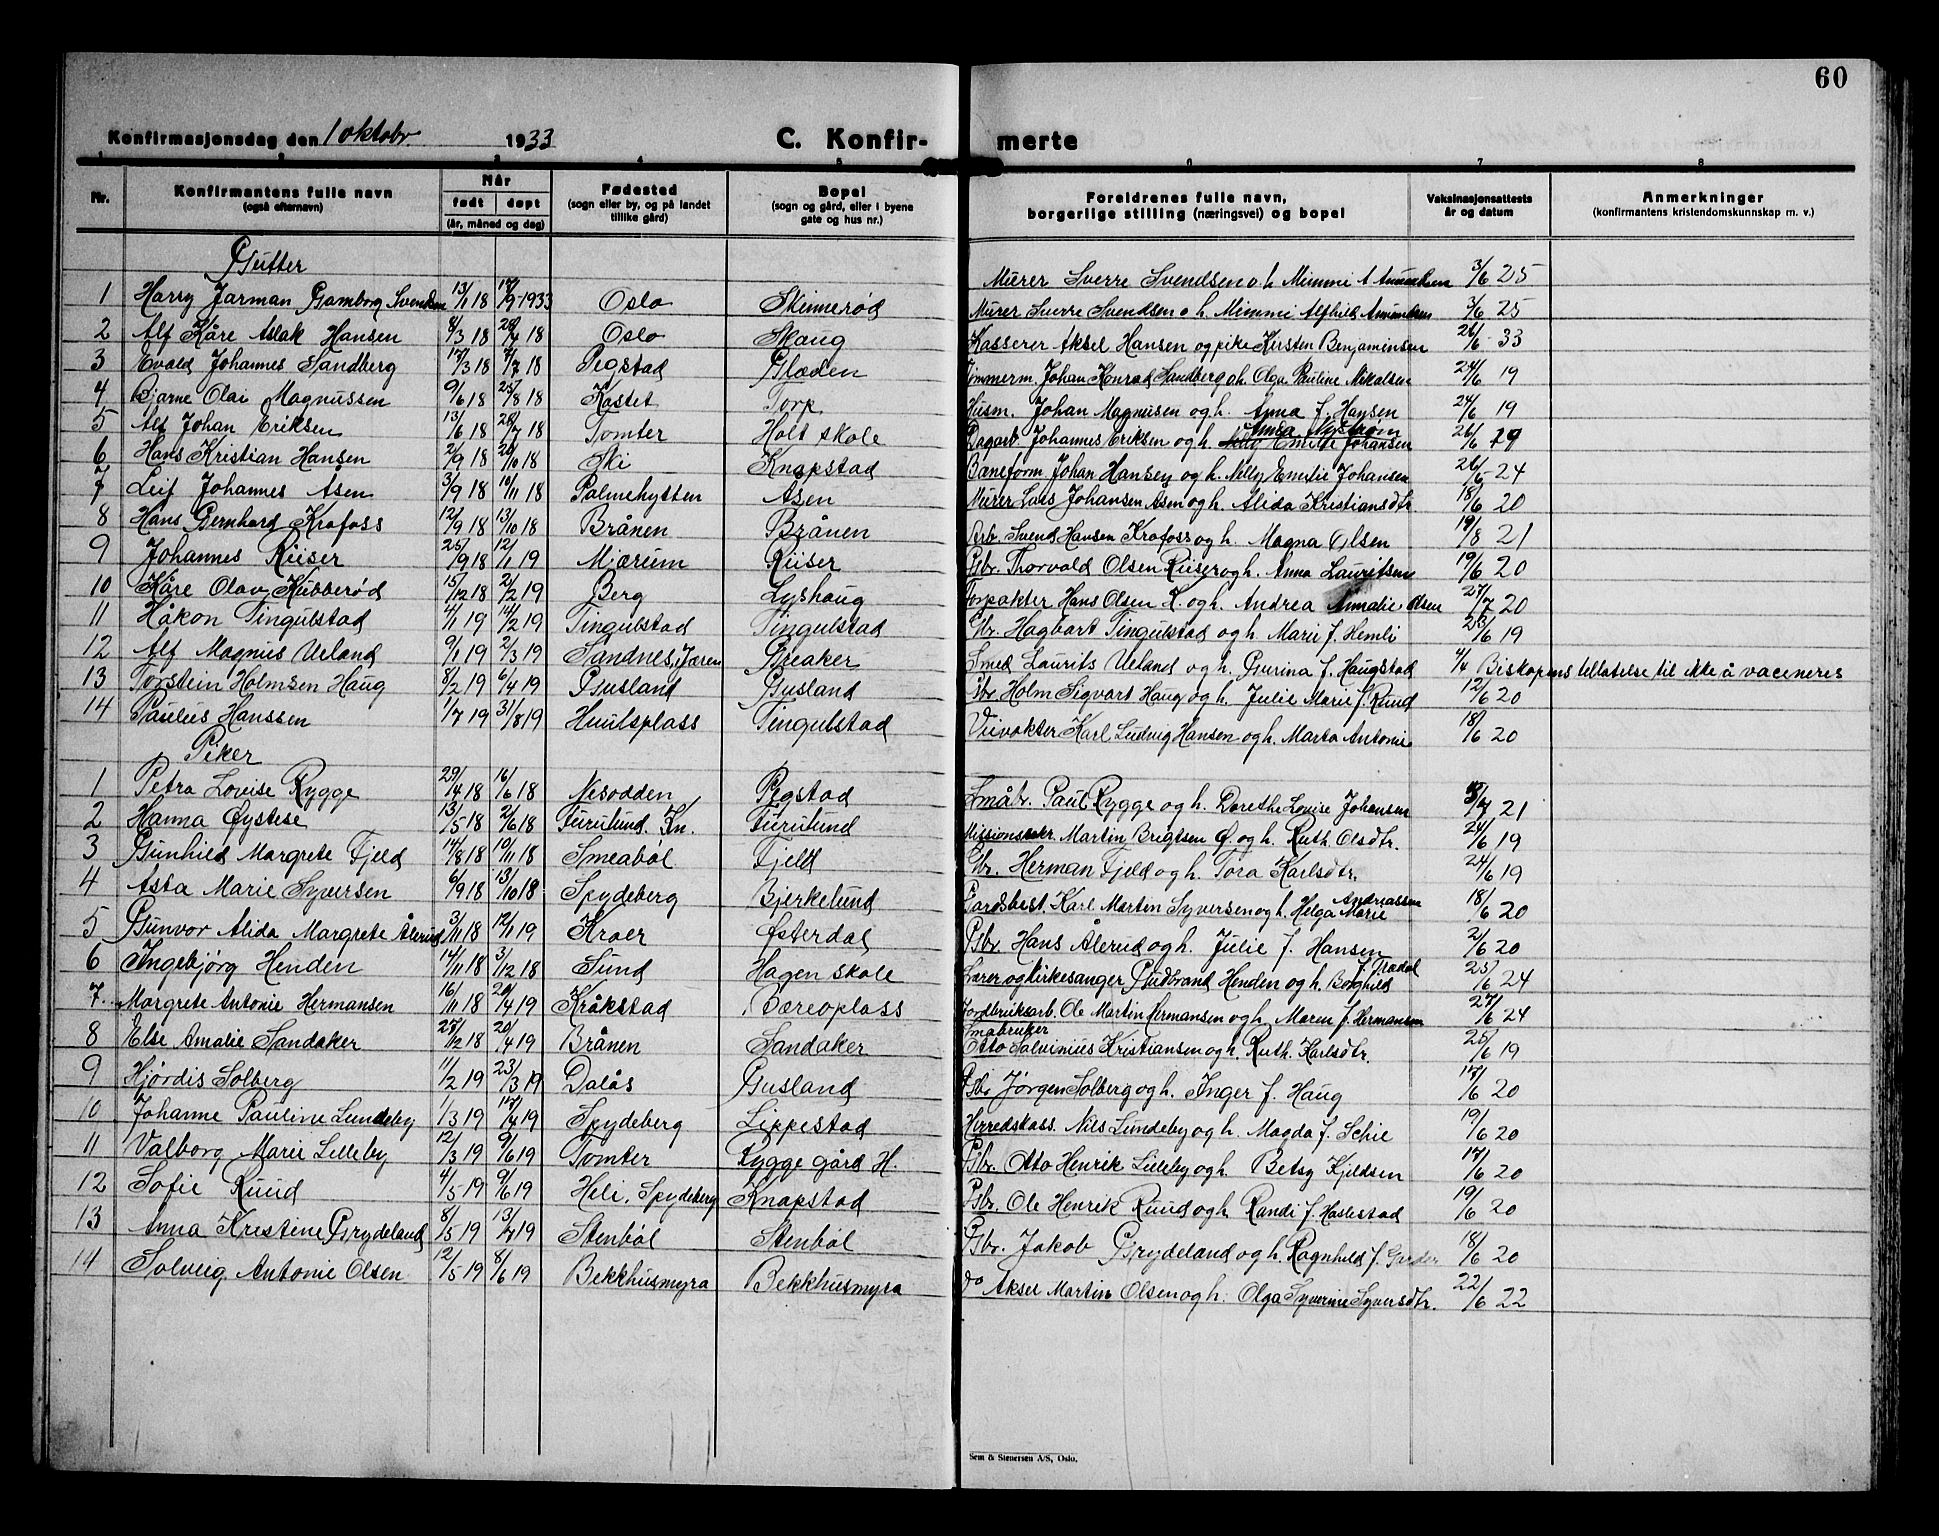 60
Konfirmasjonsdag den 1 oktobr. 1933 C. Konfir- merte
1 2 3 4 5 6 7 8
Nr. Konfirmantens fulle navn (også efternavn) Når født døpt (år, måned og dag) Fødested (sogn eller by, og på landet tillike gård) Bopel (sogn og gård, eller i byene gate og hus nr.) Foreldrenes fulle navn, borgerlige stilling (næringsvei) og bopel Vaksinasjonsattests år og datum Anmerkninger (konfirmantens kristendomskunnskap m. v.)
Gutter
Murer Sverre Svendsen o. h. Mimmi A Amundsen 3/6 25
1 Harry Jarman Gamborg Svendsen 13/1 18 17/9 1933 Oslo Skinnerød Murer Sverre Svendsen o h. Mimmi Alfhild Amundsen 3/6 25
2 Alf Kåre Aslak Hansen 8/3 18 28/4 18 Oslo Skaug Kasserer Aksel Hansen og pike Kirsten Benjaminsen 26/6 33
3 Evald Johannes Sandberg 17/3 18 7/7 18 Pegstad Glæden Tømmerm. Johan Konrad Sandberg o h. Olga Pauline Mikalsen 24/6 19
4 Bjarne Olai Magnussen 9/6 18 25/8 18 Kostet Torp Husm. Johan Magnusen og h. Anna f. Hansen 24/6 19
5 Alf Johan Eriksen 13/6 18 28/7 18 Tomter Holt skole Dagarb. Johannes Eriksen og h. Anna Nystrøm 26/6 19
6 Hans Kristian Hansen 2/9 18 20/10 18 Ski Knapstad Baneform. Johan Hansen og h. Nelly Emilie Johansen 26/6 24
7 Leif Johannes Åsen 3/9 18 10/11 18 Palmehytten Åsen Murer Lars Johansen Åsen og h. Alida Kristiansdtr. 18/6 20
8 Hans Bernhard Krofoss 12/9 18 13/10 18 Brånen Brånen Arb. Svend Hansen Krofoss og h. Magna Olsen 19/8 21
9 Johannes Ruiser 25/9 18 12/1 19 Mjærum Ruiser Gbr. Thorvald Olsen Ruiser og h. Anna Lauritsen 19/6 20
10 Kåre Olav Kubberød 15/12 18 2/2 19 Berg Lyshaug Forpakter Hans Olsen K. og h. Andrea Annalie Olsen 27/7 20
11 Håkon Tingulstad 4/1 19 14/2 19 Tingulstad Tingulstad Gbr. Hagbart Tingulstad og h. Marie f. Hemli 23/6 19
12 Alf Magnus Ueland 9/1 19 2/3 19 Sandnes, Jæren Greaker Smed Laurits Ueland og h. Gurina f. Haugstad 4/4 Biskopens tillatelse til ikke å vaceneres
13 Torstein Holmsen Haug 8/2 19 6/4 19 Gusland Gusland Gbr. Holm Sigvart Haug og h. Julie Marie f. Ruud 12/6 20
14 Paulus Hanssen 1/7 19 31/8 19 Huulsplass Tingulstad Veivokter Karl Ludvig Hansen og h. Marta Antonie 18/6 20
Piker
1 Petra Lovise Rygge 29/4 18 16/6 18 Nesodden Pegstad Småbr. Paul Rygge og h. Dorethe Louise Johansen 8/7 21
2 Hanna Øystese 13/5 18 2/6 18 Furulund. Kn. Furulund Missionssekr. Martin Brigtsen Ø og h. Ruth Olsdtr. 24/6 19
3 Gunhild Margrete Fjeld 14/8 18 10/11 18 Smeabøl Fjeld Gbr. Herman Fjeld og h. Tora Karlsdtr. 24/6 19
4 Asta Marie Syversen 6/9 18 13/10 18 Spydeberg Bjerkelund Gardsbest. Karl Martin Syversen og h. Helga Marie Andreassen 18/6 20
5 Gunvor Alida Margrete Ålerud 3/11 18 12/1 19 Kroer Østerdal Gbr. Hans Ålerud og h. Julie f. Hansen 2/6 20
6 Ingebjørg Henden 14/11 18 3/12 18 Sund Hagen skole Lærer og kirkesanger Gudbrand Henden og h. Borghild f. Trædal 25/6 24
7 Margrete Antonie Hermansen 16/11 18 20/4 19 Kråkstad Bæreoplass Jordbruksarb. Ole Martin Hermansen og h. Maren f. Hermansen 27/6 24
8 Else Amalie Sandaker 27/12 18 20/4 19 Brånen Sandaker Småbruker Otto Salvinius Kristiansen og h. Ruth Karlsdtr. 25/6 19
9 Hjørdis Solberg 11/2 19 23/3 19 Dalås Gusland Gbr Jørgen Solberg og h. Inger f. Haug 17/6 20
10 Johanne Pauline Lundeby 1/3 19 17/4 19 Spydeberg Lippestad Herredskass. Nils Lundeby og h. Magda f. Schie 19/6 20
11 Valborg Marie Lilleby 12/3 19 9/6 19 Tomter Rygge gård H. Gbr. Otto Henrik Lilleby og h. Betsy Kjeldsen 17/6 20
12 Sofie Ruud 4/5 19 9/6 19 Heli, Spydeberg Knapstad Gbr. Ole Henrik Ruud og h. Randi f. Haslestad 19/6 20
13 Anna Kristine Grydeland 8/5 19 13/7 19 Stenbøl Stenbøl Gbr. Jakob Grydeland og h. Ragnhild f. Garder 18/6 20
14 Solveig Antonie Olsen 12/5 19 8/6 19 Bekkhusmyra Bekkhusmyra do Aksel Martin Olsen og h. Olga Syverine Syversdtr. 22/6 22
Sem & Stenersen A/S, Oslo.